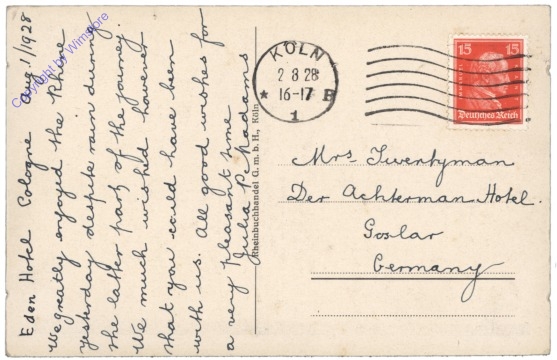 Eden Hotel Cologne Aug. 1/1928
We greatly enjoyed the Rhine
yesterday despite rain during
the latter part of the journey.
We much wished however
that you could have been
with us. All good wishes for
a very pleasant time
Julia P. Madams
Rheinbuchhandel G. m. b. H., Köln
KÖLN
2 8 28
* 16-17 B
1
15 15
Deutsches Reich
Mrs. Twentyman
Der Achterman Hotel.
Goslar
Germany
Copyright by Wimstore